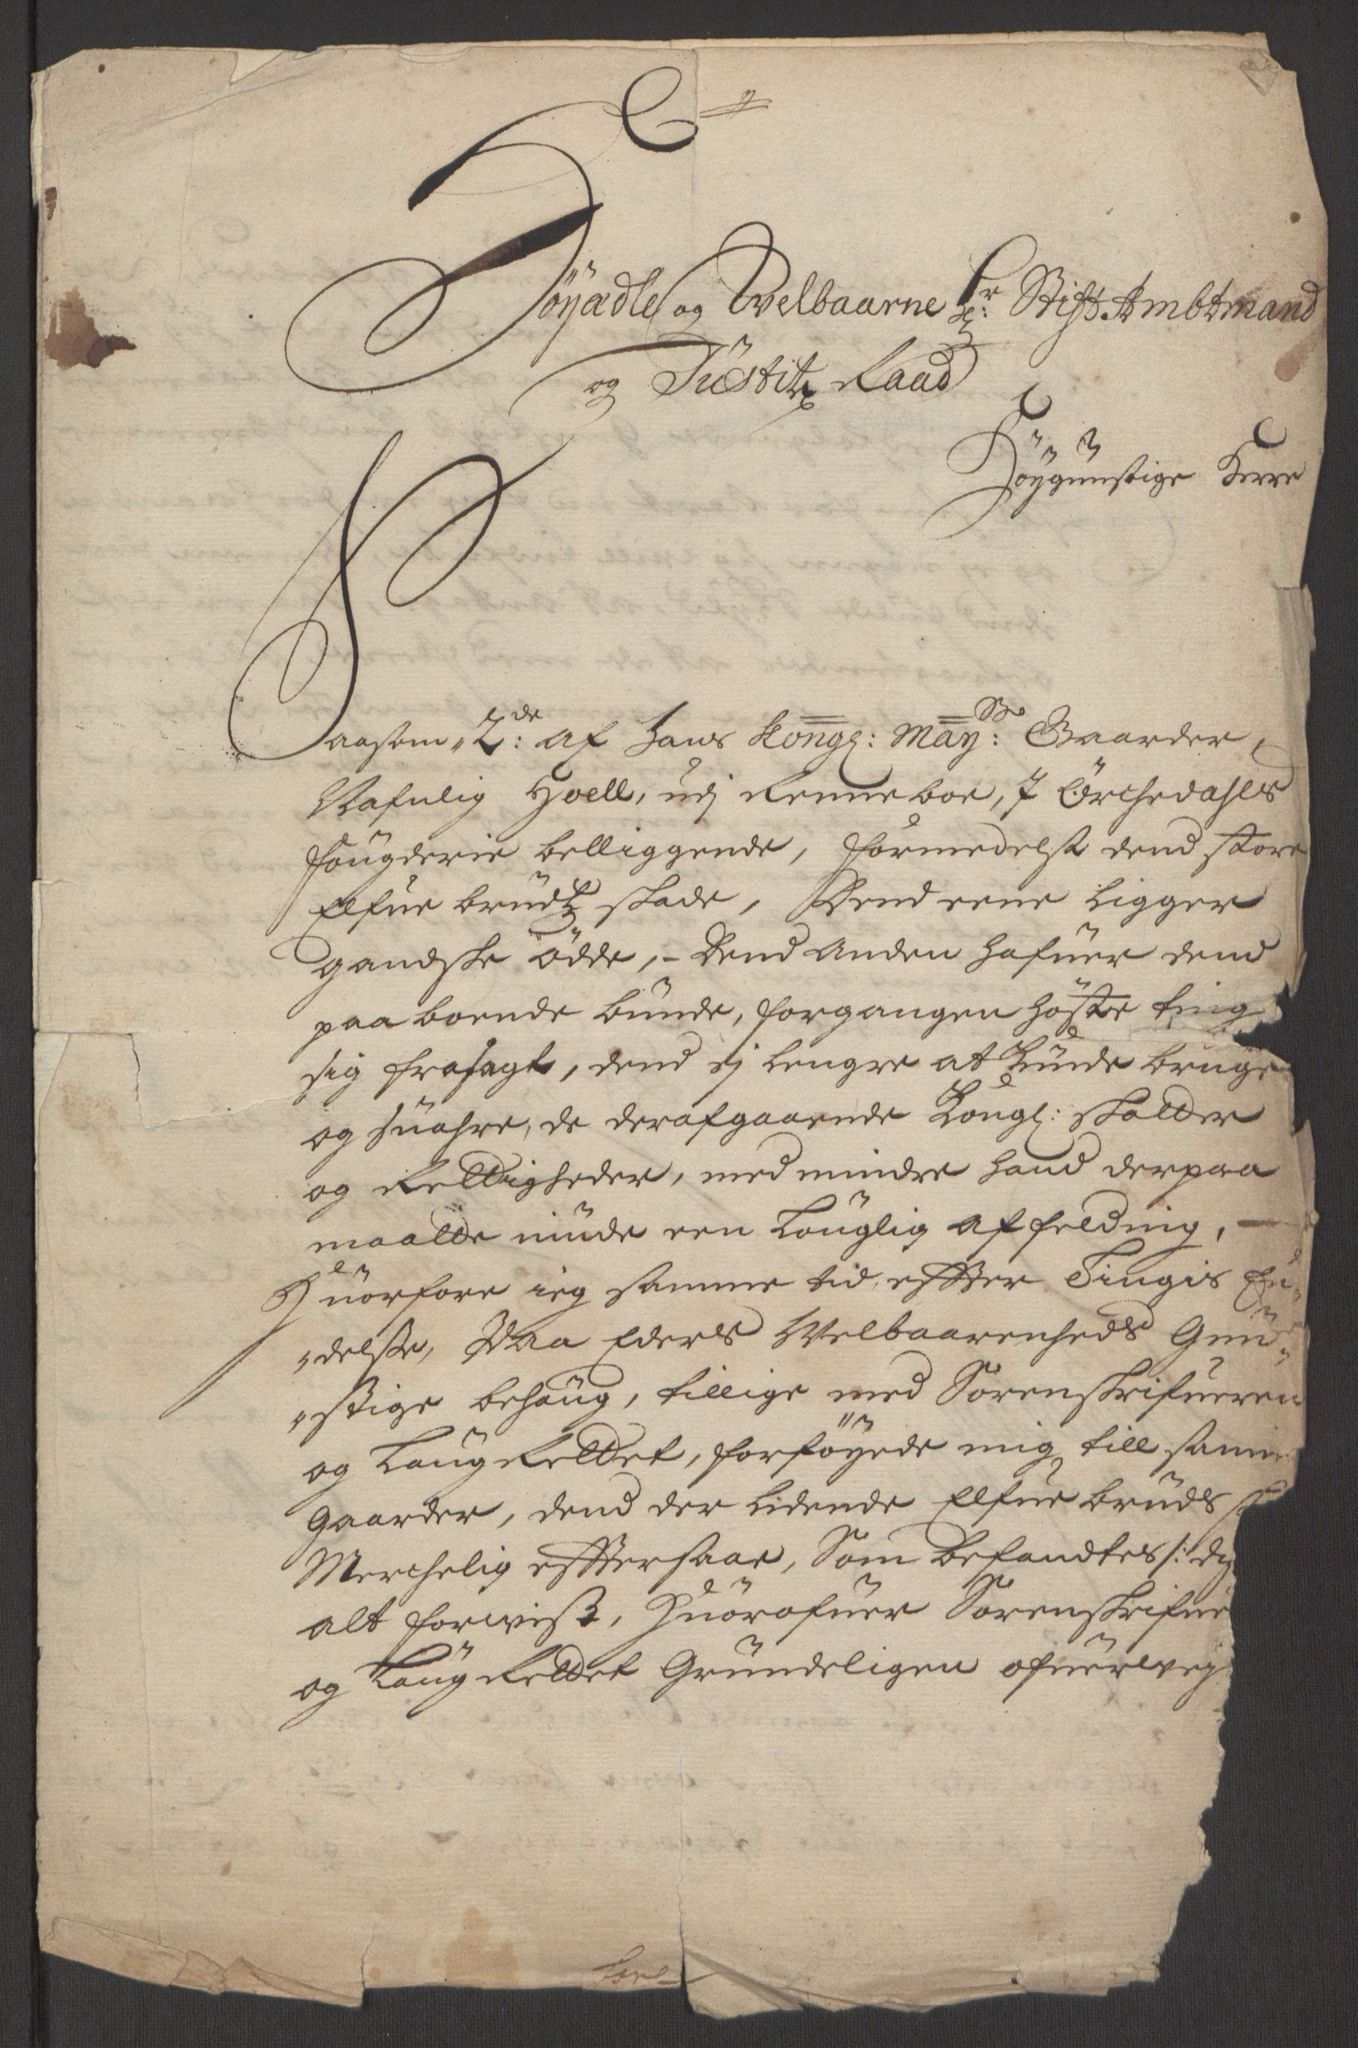 Höÿædle og Welbaarne Hr: Stift Ambtmand
og Justitz Raad
Höÿgunstige Herre
Saasom 2de: af Hans Kongl: May: Gaarder,
Nafnlig Hoell, udj Renneboe, J Örchedahls
fougderie belliggende, formedelst dend store
Elfue bruds skade, Dend eene Ligger
gandske ödde, - Dend Anden hafuer dend
paa boende bunde, forgangen höste ting
sig frasagt, dend ej lengre at kunde bruge
og suahre, de derafgaaende Kongl: skatter
og Rettigheder, med mindre hand derpaa
maatte niude een Louglig affelding,
Huorfore ieg samme tid effter Tingis En-
"delse, Paa Eders Welbaarenheds Gun-
"stige behaug, tillige med Sorenskrifueren
og Laug Rettet, forföÿede mig till samme
Gaarder, dend der lidende Elfue bruds
Merchelig effttersaae, Som befandtes
alt forwist, Huorofuer Sorenskrifue
og Laug Rettet Grundeligen ofuerweÿ